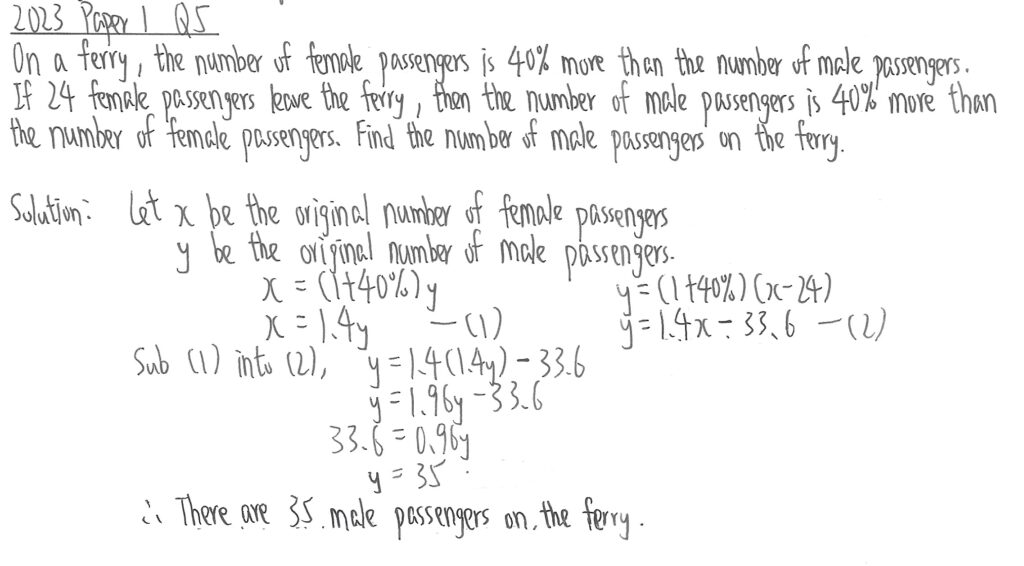 2023 Paper 1 Q5
On a ferry, the number of female passengers is 40% more than the number of male passengers.
If 24 female passengers leave the ferry, then the number of male passengers is 40% more than
the number of female passengers. Find the number of male passengers on the ferry.
Solution: Let x be the original number of female passengers
y be the original number of male passengers.
x = (1+40%)y
y = (1+40%)(x-24)
x = 1.4y —(1)
y = 1.4x - 33.6 —(2)
Sub (1) into (2), y = 1.4(1.4y) - 33.6
y = 1.96y - 33.6
33.6 = 0.96y
y = 35
∴ There are 35 male passengers on the ferry.